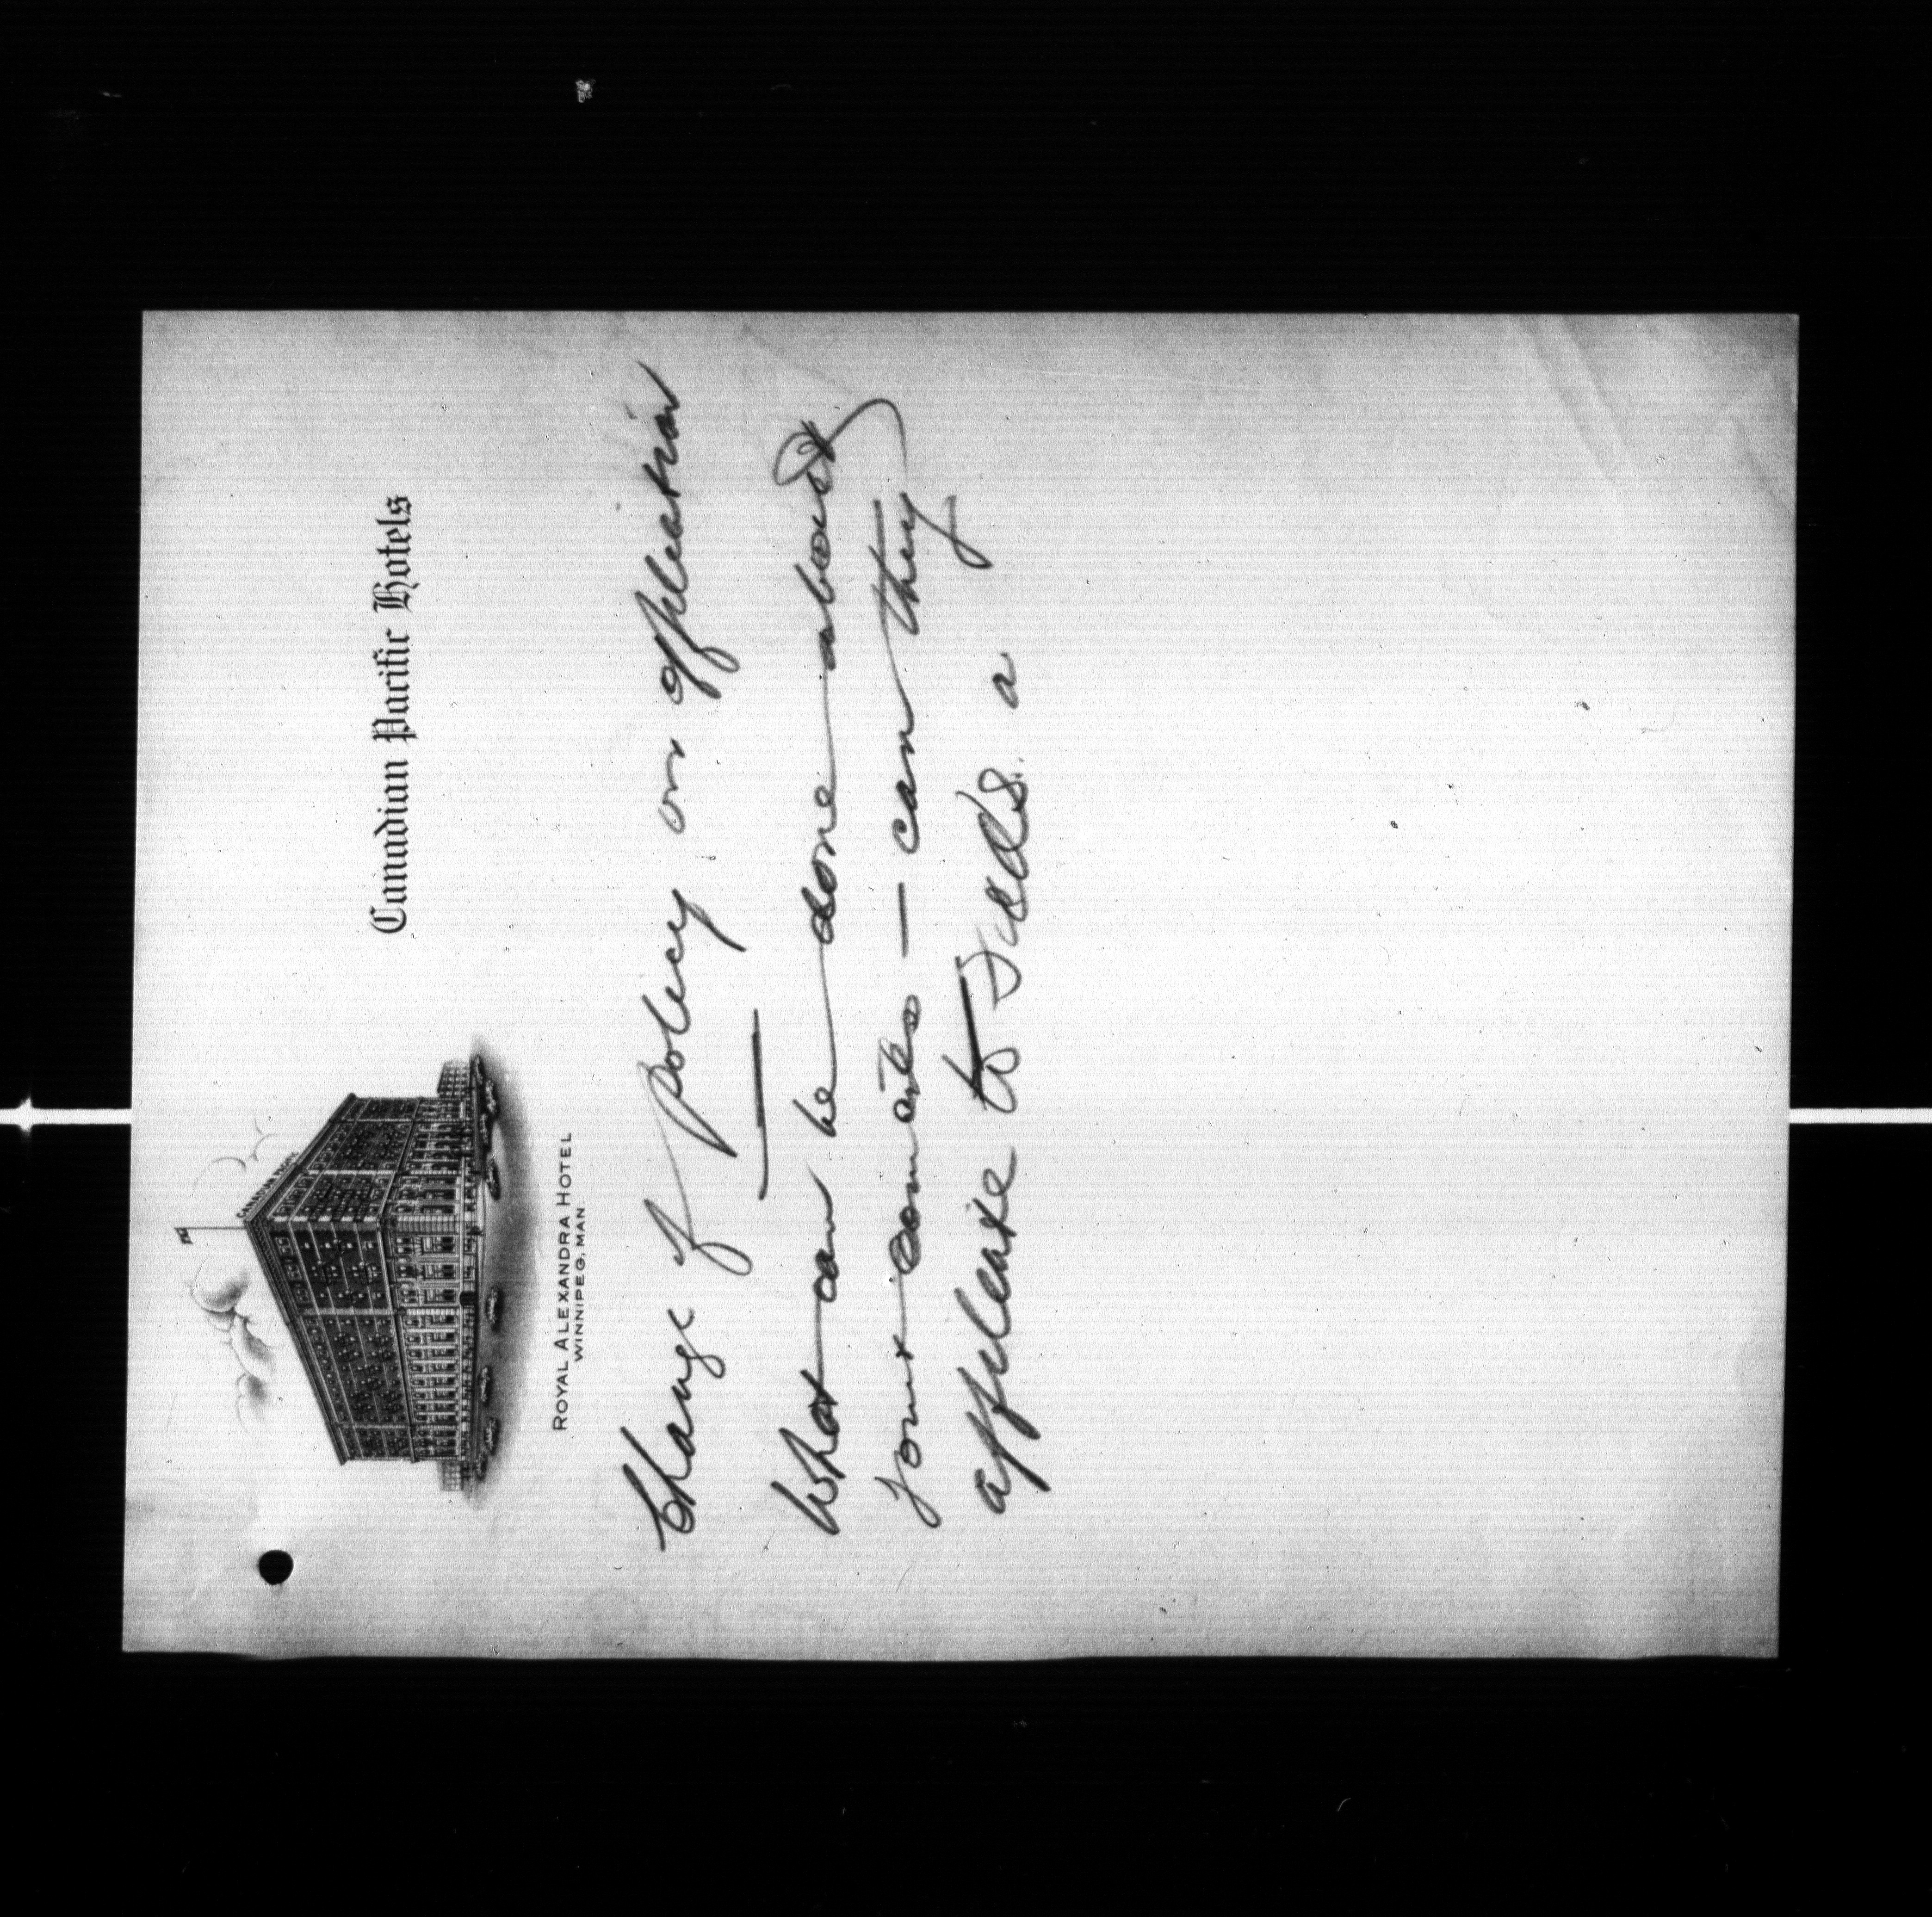 Canadian Pacific Hotels
CANADIAN PACIFIC
ROYAL ALEXANDRA HOTEL
WINNIPEG, MAN.
Change of Policy on affileation
What can be done about
Joint comités — can they
affileate to a